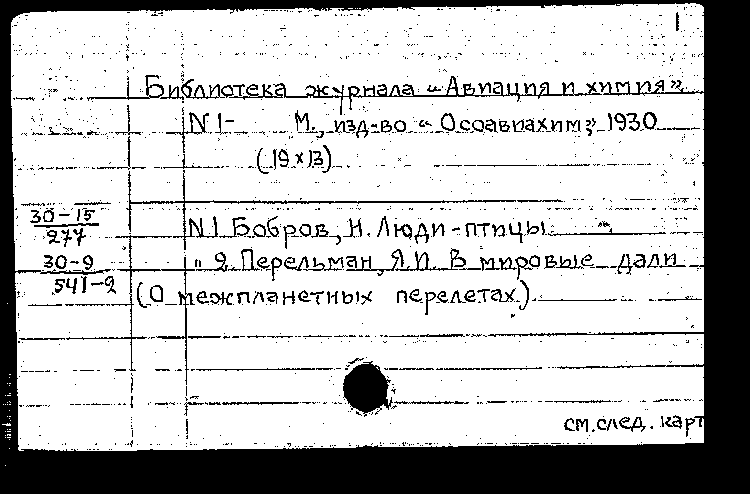 1
Библиотека журнала "Авиация и химия".
N 1- М., изд-во "Осоавиахим", 1930
(19x13)
30-15 N 1 Бобров, Н. Люди-птицы.
277
30-9 " 2 Перельман, Я.И. В мировые дали
541-2 (О межпланетных перелетах).
см.след.карт